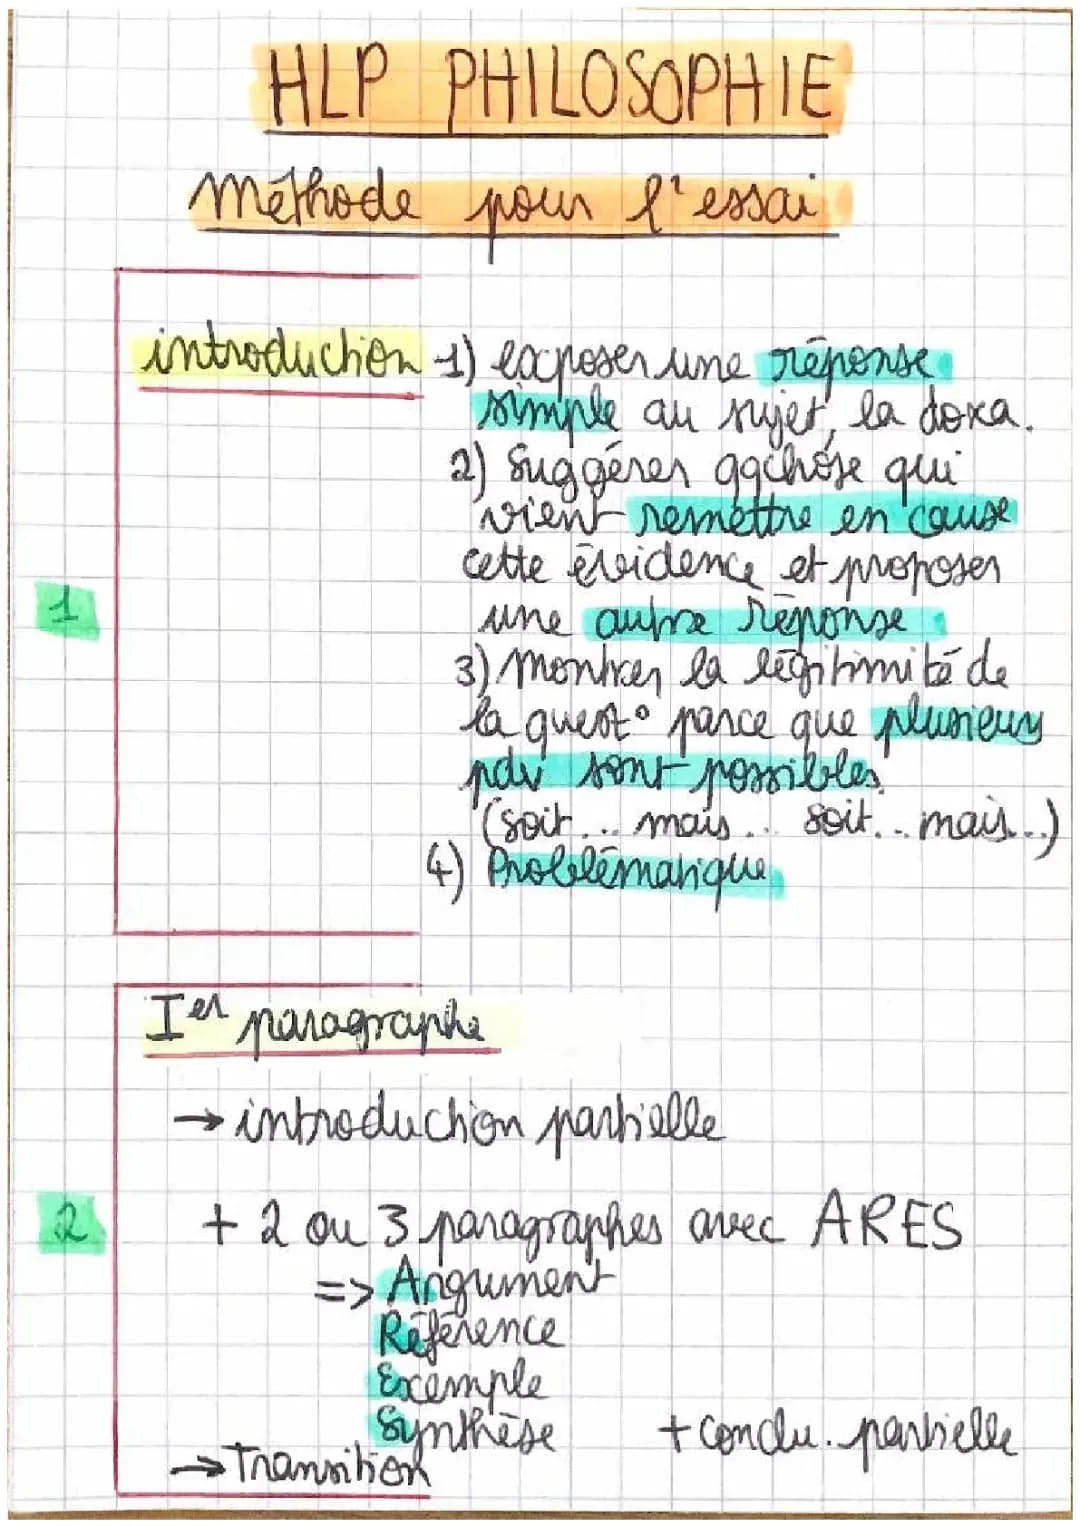 HLP PHILOSOPHIE
Méthode pour l'essai
introduction 1) exposer une réponse
simple au sujet, la doxa.
2) Suggérer qqchose qui
vient remettre en cause
cette évidence et proposer
une autre réponse
1
3) Montrer la légitimité de
la quest° parce que plusieurs
pdv sont possibles.
(soit... mais... soit... mais...)
4) Problématique
Ier paragraphe
→ introduction partielle
2
+ 2 ou 3 paragraphes avec ARES
=> Argument
Référence
Exemple
Synthèse + conclu. partielle
→ Transition